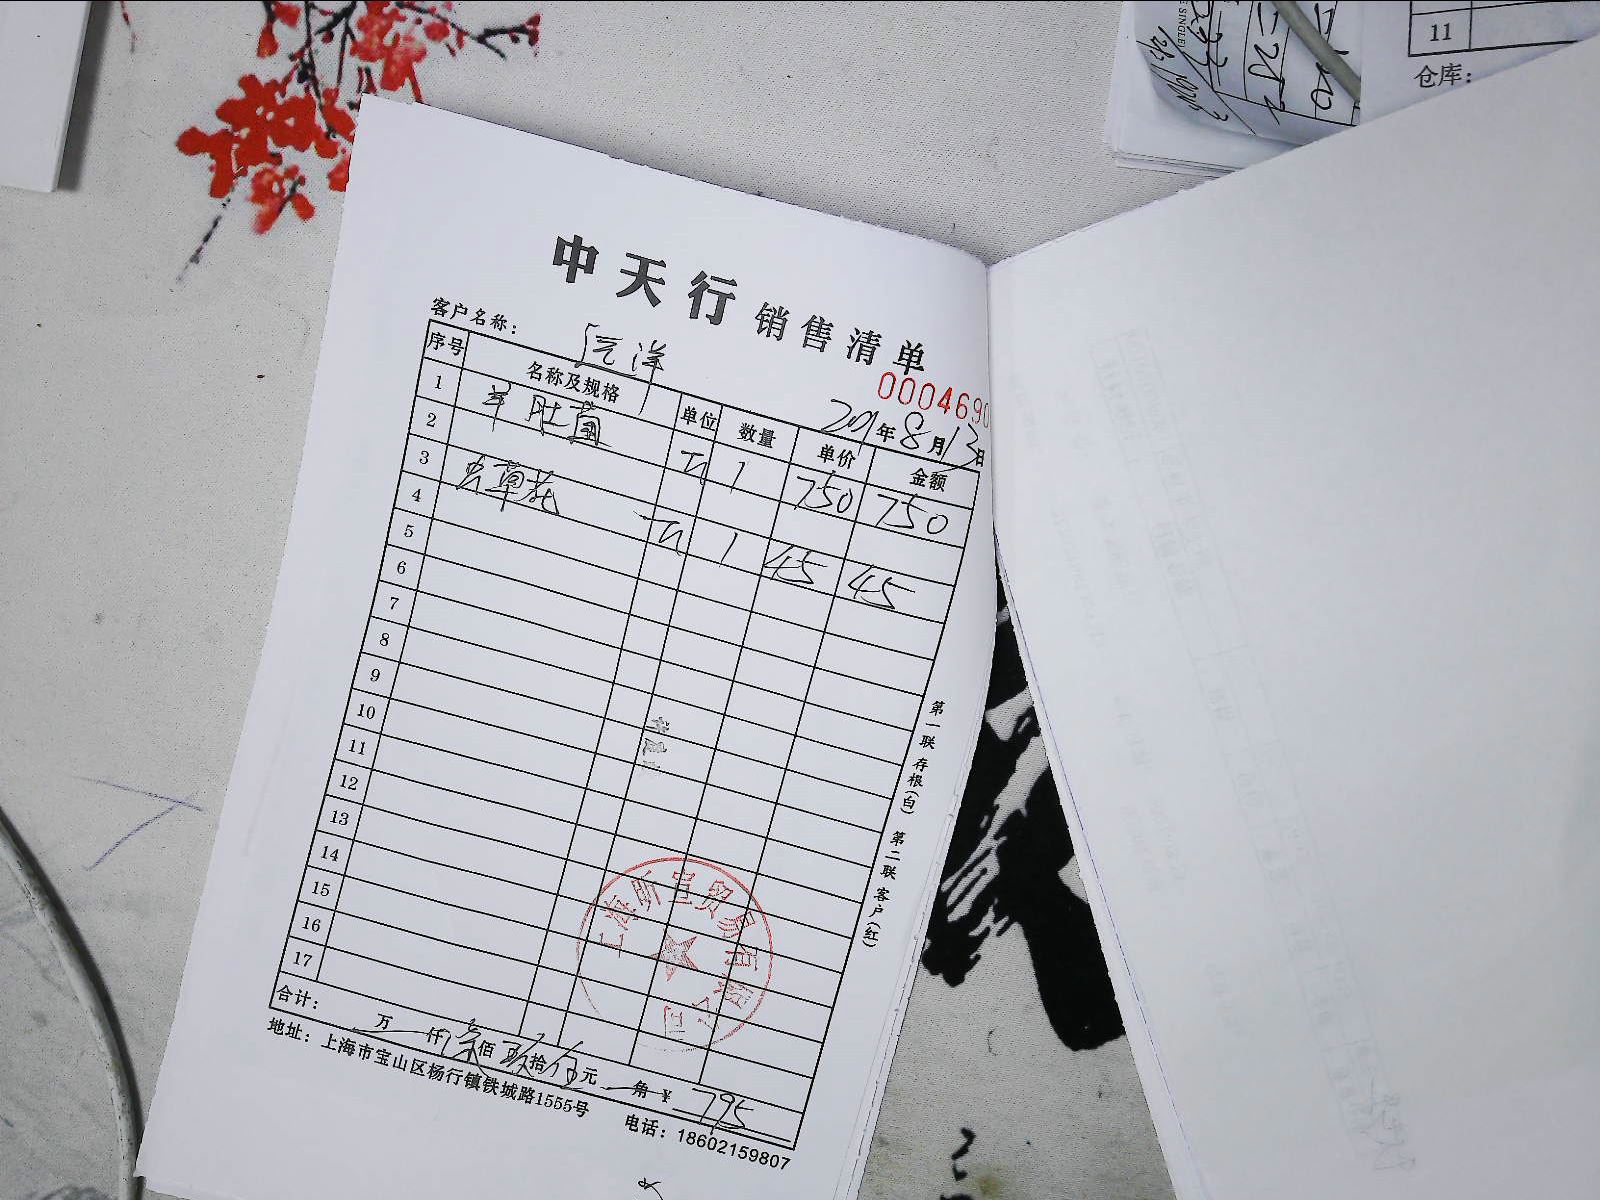 中天行 销售清单
0004690
客户名称：
年8月13日
序号 名称及规格 单位 数量 单价 金额
1 羊肚菌 1 750 750
2
3 虫草花 1 45 45
4
5
6
7
8
9
10
11
12
13
14
15
16
17
合计： 万 仟 柒佰 玖拾 伍元 角 ¥ 795
地址：上海市宝山区杨行镇铁城路1555号 电话：18602159807
第一联 存根（白） 第二联 客户（红）
11
仓库：